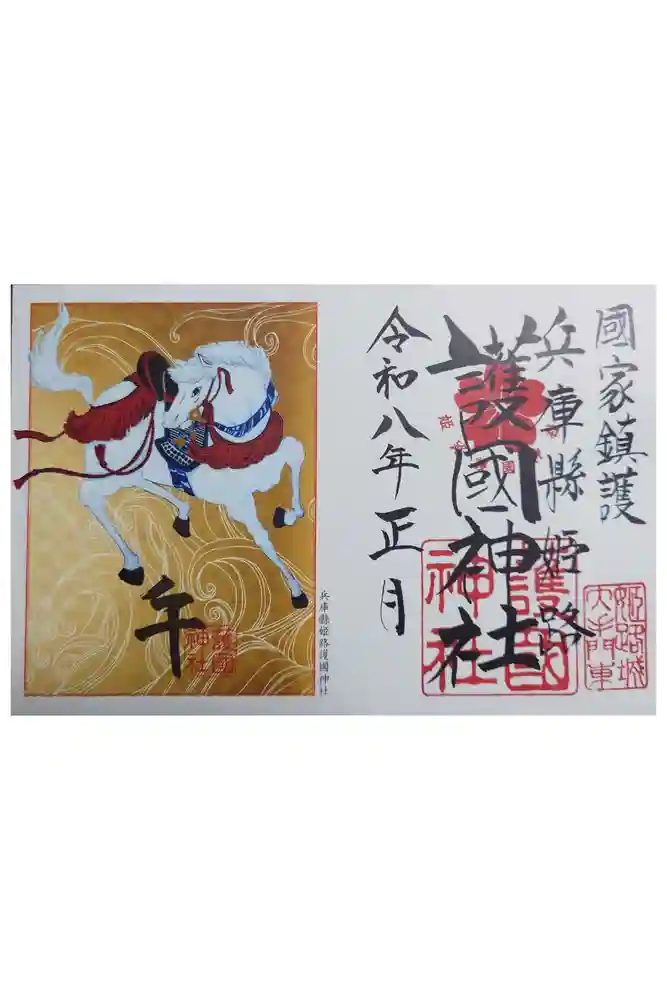 國家鎮護
兵庫縣姫路
護國神社
令和八年正月
護國
神社
姫路城
大手門東
午
護國
神社
兵庫縣姫路護國神社